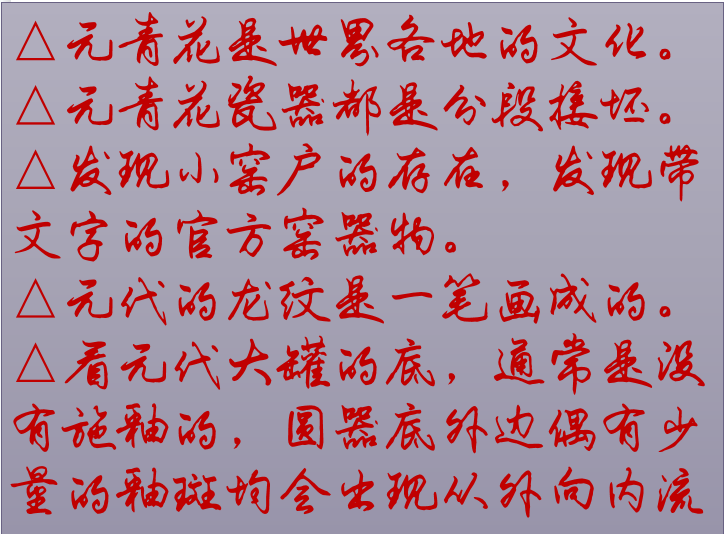 △元青花是世界各地的文化。
△元青花瓷器都是分段接坯。
△发现小窑户的存在，发现带
文字的官方窑器物。
△元代的龙纹是一笔画成的。
△看元代大罐的底，通常是没
有施釉的，圆器底外边偶有少
量的釉斑均会出现从外向内流